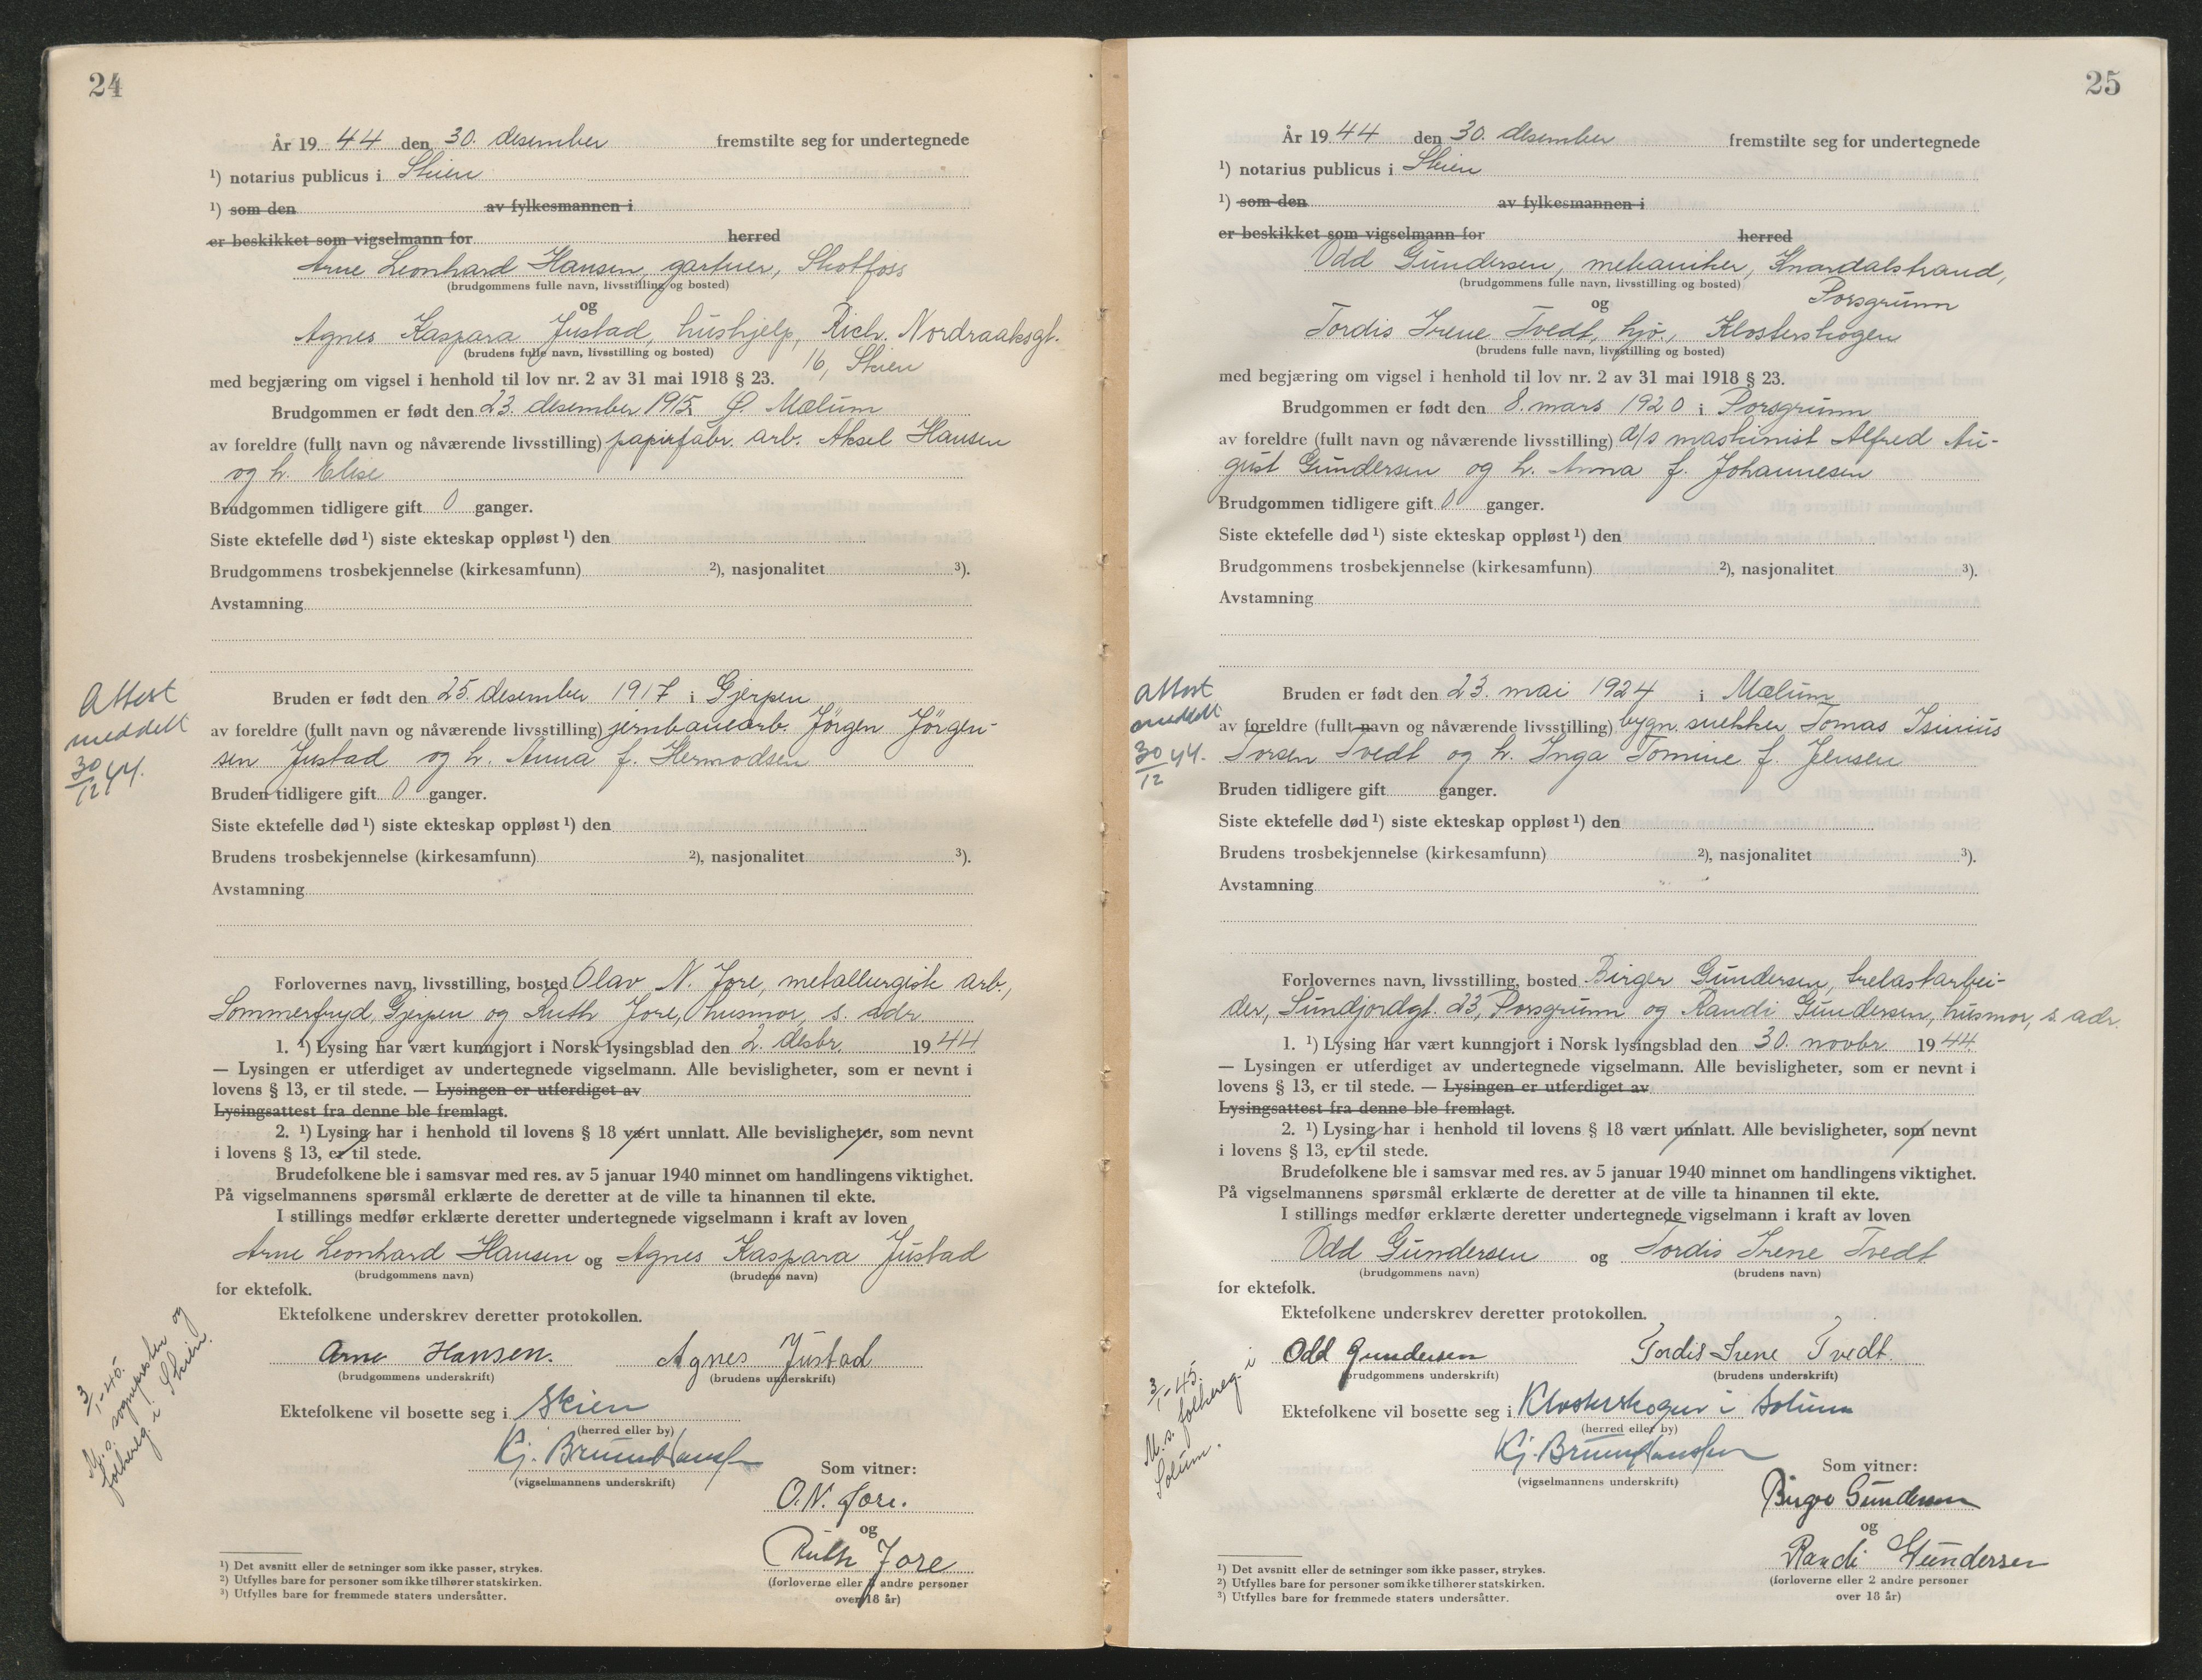 24
År 19 44 den 30. desember fremstilte seg for undertegnede
¹) notarius publicus i Skien
¹) som den av fylkesmannen i
er beskikket som vigselmann for herred
Arne Leonhard Hansen, gartner, Skotfoss
(brudgommens fulle navn, livsstilling og bosted)
og
Agnes Kaspara Justad, hushjelp, Rich. Nordraaksgt.
(brudens fulle navn, livsstilling og bosted)
16, Skien
med begjæring om vigsel i henhold til lov nr. 2 av 31 mai 1918 § 23.
Brudgommen er født den 23. desember 1915 Mælum
av foreldre (fullt navn og nåværende livsstilling) papirfabr. arb. Aksel Hansen
og h. Elise
Brudgommen tidligere gift 0 ganger.
Siste ektefelle død ¹) siste ekteskap oppløst ¹) den
Brudgommens trosbekjennelse (kirkesamfunn) ²), nasjonalitet ³).
Avstamning
Attest
meddelt
30/12 44.
Bruden er født den 25. desember 1917 i Gjerpen
av foreldre (fullt navn og nåværende livsstilling) jernbanearb. Jörgen Jörgen-
sen Justad og h. Anna f. Hermodsen
Bruden tidligere gift 0 ganger.
Siste ektefelle død ¹) siste ekteskap oppløst ¹) den
Brudens trosbekjennelse (kirkesamfunn) ²), nasjonalitet ³).
Avstamning
Forlovernes navn, livsstilling, bosted Olav N. Jore, metallurgisk arb.,
Sommerfryd, Gjerpen og Ruth Jore, husmor, s. adr.
1. ¹) Lysing har vært kunngjort i Norsk lysingsblad den 2. desbr. 19 44
— Lysingen er utferdiget av undertegnede vigselmann. Alle bevisligheter, som er nevnt i
lovens § 13, er til stede. — Lysingen er utferdiget av
Lysingsattest fra denne ble fremlagt.
2. ¹) Lysing har i henhold til lovens § 18 vært unnlatt. Alle bevisligheter, som nevnt
i lovens § 13, er til stede.
Brudefolkene ble i samsvar med res. av 5 januar 1940 minnet om handlingens viktighet.
På vigselmannens spørsmål erklærte de deretter at de ville ta hinannen til ekte.
I stillings medfør erklærte deretter undertegnede vigselmann i kraft av loven
Arne Leonhard Hansen og Agnes Kaspara Justad
(brudgommens navn) (brudens navn)
for ektefolk.
Ektefolkene underskrev deretter protokollen.
Arne Hansen. Agnes Justad
(brudgommens underskrift) (brudens underskrift)
3/1-45.
M. s. sognepresten og
folkereg. i Skien.
Ektefolkene vil bosette seg i Skien
(herred eller by)
Kj. Brunn Hanssen
(vigselmannens underskrift)
Som vitner:
O.N. Jore.
og
Ruth Jore
(forloverne eller 2 andre personer
over 18 år)
¹) Det avsnitt eller de setninger som ikke passer, strykes.
²) Utfylles bare for personer som ikke tilhører statskirken.
³) Utfylles bare for fremmede staters undersåtter.
25
År 19 44 den 30. desember fremstilte seg for undertegnede
¹) notarius publicus i Skien
¹) som den av fylkesmannen i
er beskikket som vigselmann for herred
Odd Gundersen, mekaniker, Knardalstrand,
(brudgommens fulle navn, livsstilling og bosted)
Porsgrunn
og
Tordis Irene Tvedt, hjv., Klosterskogen
(brudens fulle navn, livsstilling og bosted)
med begjæring om vigsel i henhold til lov nr. 2 av 31 mai 1918 § 23.
Brudgommen er født den 8. mars 1920 i Porsgrunn
av foreldre (fullt navn og nåværende livsstilling) d/s maskinist Alfred Au-
gust Gundersen og h. Anna f. Johannesen
Brudgommen tidligere gift 0 ganger.
Siste ektefelle død ¹) siste ekteskap oppløst ¹) den
Brudgommens trosbekjennelse (kirkesamfunn) ²), nasjonalitet ³).
Avstamning
Attest
meddelt
30/12 44.
Bruden er født den 23. mai 1924 i Mælum
av foreldre (fullt navn og nåværende livsstilling) bygn. snekker Tomas Isinius
Torsen Tvedt og h. Inga Tomine f. Jensen
Bruden tidligere gift ganger.
Siste ektefelle død ¹) siste ekteskap oppløst ¹) den
Brudens trosbekjennelse (kirkesamfunn) ²), nasjonalitet ³).
Avstamning
Forlovernes navn, livsstilling, bosted Birger Gundersen, trelastarbei-
der, Sundjordgt. 23, Porsgrunn og Randi Gundersen, husmor, s. adr.
1. ¹) Lysing har vært kunngjort i Norsk lysingsblad den 30. novbr. 19 44.
— Lysingen er utferdiget av undertegnede vigselmann. Alle bevisligheter, som er nevnt i
lovens § 13, er til stede. — Lysingen er utferdiget av
Lysingsattest fra denne ble fremlagt.
2. ¹) Lysing har i henhold til lovens § 18 vært unnlatt. Alle bevisligheter, som nevnt
i lovens § 13, er til stede.
Brudefolkene ble i samsvar med res. av 5 januar 1940 minnet om handlingens viktighet.
På vigselmannens spørsmål erklærte de deretter at de ville ta hinannen til ekte.
I stillings medfør erklærte deretter undertegnede vigselmann i kraft av loven
Odd Gundersen og Tordis Irene Tvedt
(brudgommens navn) (brudens navn)
for ektefolk.
Ektefolkene underskrev deretter protokollen.
Odd Gundersen Tordis Irene Tvedt.
(brudgommens underskrift) (brudens underskrift)
3/1-45.
M. s. folkereg. i
Solum.
Ektefolkene vil bosette seg i Klosterskogen i Solum
(herred eller by)
Kj. Brunn Hanssen
(vigselmannens underskrift)
Som vitner:
Birger Gundersen
og
Randi Gundersen
(forloverne eller 2 andre personer
over 18 år)
¹) Det avsnitt eller de setninger som ikke passer, strykes.
²) Utfylles bare for personer som ikke tilhører statskirken.
³) Utfylles bare for fremmede staters undersåtter.